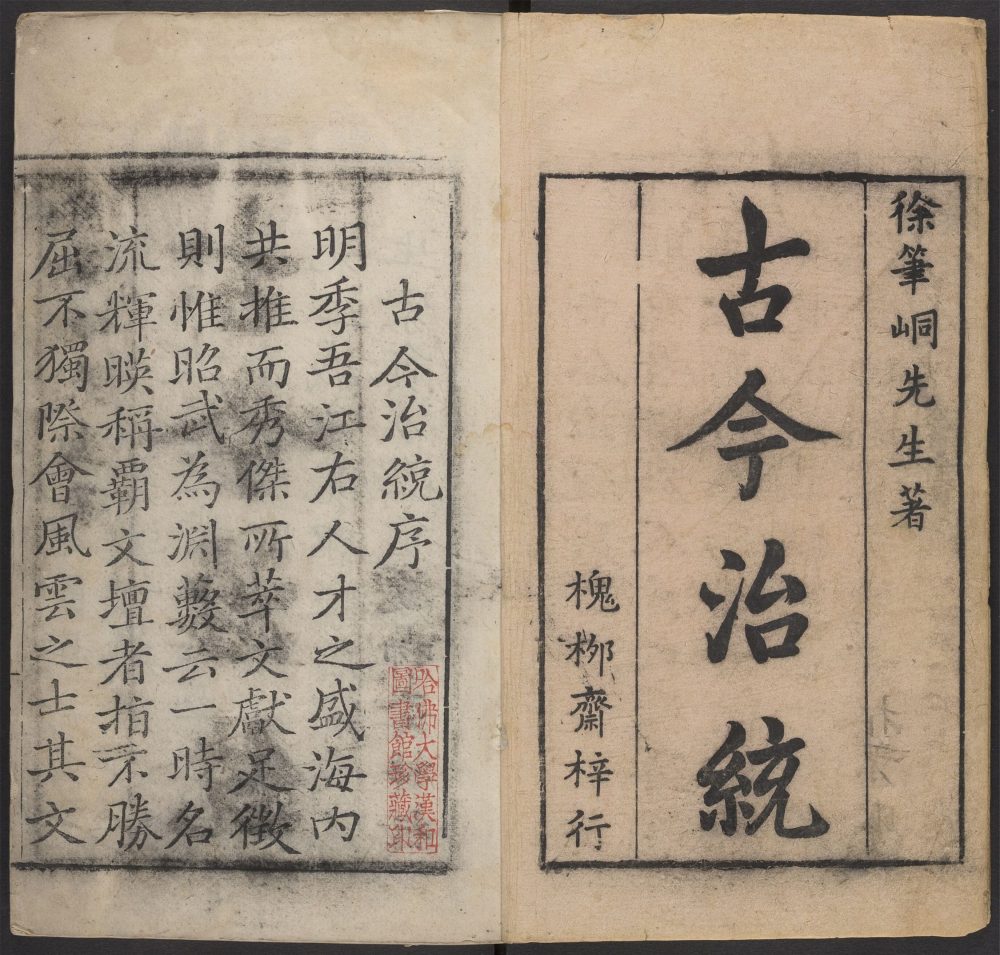 徐筆峒先生著
古今治統
槐柳齋梓行
古今治統序
明季吾江右人才之盛海内
共推而秀傑所萃文獻足徵
則惟昭武為淵藪云一時名
流輝暎稱覇文壇者指不勝
屈不獨際會風雲之士其文
哈佛大學漢和
圖書館珍藏印